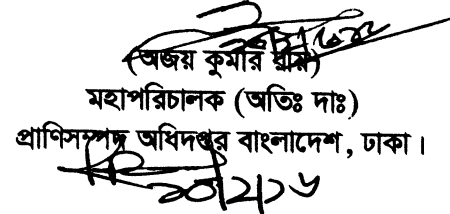 (অজয় কুমার রায়)
মহাপরিচালক (অতিঃ দাঃ)
প্রাণিসম্পদ অধিদপ্তর বাংলাদেশ, ঢাকা।